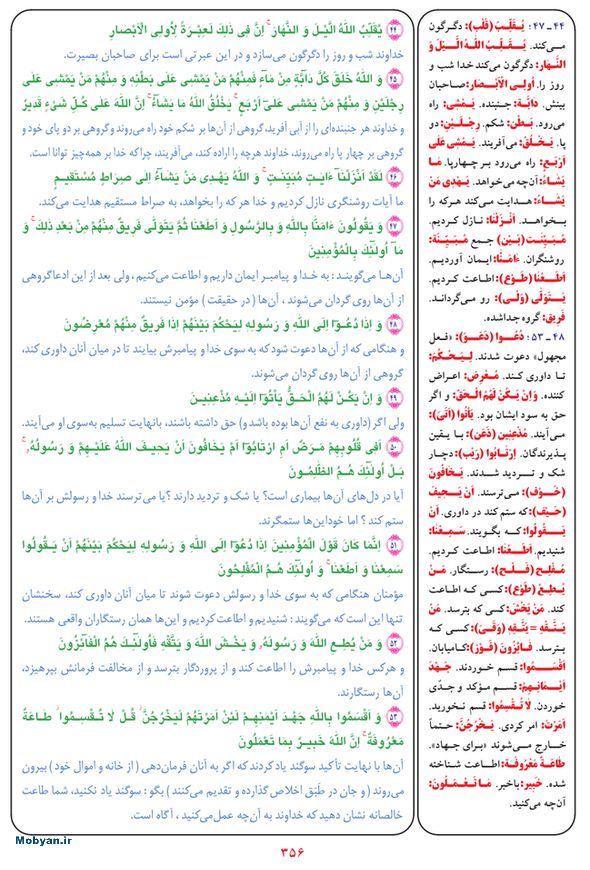 ۴۴ يُقَلِّبُ اللهُ الَّيْلَ وَ النَّهَارَ ۚ اِنَّ فِى ذٰلِكَ لَعِبْرَةً لِاُولِى الْاَبْصَارِ
خداوند شب و روز را دگرگون می‌سازد و در این عبرتی است برای صاحبان بصیرت.
۴۵ وَ اللهُ خَلَقَ كُلَّ دَآبَّةٍ مِنْ مَآءٍ ۖ فَمِنْهُمْ مَنْ يَمْشِى عَلٰى بَطْنِهِ وَ مِنْهُمْ مَنْ يَمْشِى عَلٰى
رِجْلَيْنِ وَ مِنْهُمْ مَنْ يَمْشِى عَلٰى اَرْبَعٍ ۚ يَخْلُقُ اللهُ مَا يَشَآءُ ۚ اِنَّ اللهَ عَلٰى كُلِّ شَىْءٍ قَدِيرٌ
و خداوند هر جنبنده‌ای را از آبی آفرید، گروهی از آن‌ها بر شکم خود راه می‌روند و گروهی بر دو پای خود و
گروهی بر چهار پا راه می‌روند، خداوند هرچه را اراده کند، می‌آفریند، چراکه خدا بر همه‌چیز توانا است.
۴۶ لَقَدْ اَنْزَلْنَآ ءَايَاتٍ مُبَيِّنَاتٍ ۚ وَ اللهُ يَهْدِى مَنْ يَشَآءُ اِلٰى صِرَاطٍ مُسْتَقِيمٍ
ما آیات روشنگری نازل کردیم و خدا هر که را بخواهد، به صراط مستقیم هدایت می‌کند.
۴۷ وَ يَقُولُونَ ءَامَنَّا بِاللهِ وَ بِالرَّسُولِ وَ اَطَعْنَا ثُمَّ يَتَوَلّٰى فَرِيقٌ مِنْهُمْ مِنْ بَعْدِ ذٰلِكَ ۚ وَ
مَآ اُولٰٓئِكَ بِالْمُؤْمِنِينَ
آن‌ها می‌گویند: به خدا و پیامبر ایمان داریم و اطاعت می‌کنیم، ولی بعد از این ادعا گروهی
از آن‌ها روی گردان می‌شوند، آن‌ها (در حقیقت) مؤمن نیستند.
۴۸ وَ اِذَا دُعُوٓا اِلَى اللهِ وَ رَسُولِهِ لِيَحْكُمَ بَيْنَهُمْ اِذَا فَرِيقٌ مِنْهُمْ مُعْرِضُونَ
و هنگامی که از آن‌ها دعوت شود که به سوی خدا و پیامبرش بیایند تا در میان آنان داوری کند،
گروهی از آن‌ها روی گردان می‌شوند.
۴۹ وَ اِنْ يَكُنْ لَهُمُ الْحَقُّ يَأْتُوٓا اِلَيْهِ مُذْعِنِينَ
ولی اگر (داوری به نفع آن‌ها بوده باشد و) حق داشته باشند، بانهایت تسلیم به‌سوی او می‌آیند.
۵۰ اَفِى قُلُوبِهِمْ مَرَضٌ اَمِ ارْتَابُوٓا اَمْ يَخَافُونَ اَنْ يَحِيفَ اللهُ عَلَيْهِمْ وَ رَسُولُهُ ۚ
بَلْ اُولٰٓئِكَ هُمُ الظَّالِمُونَ
آیا در دل‌های آن‌ها بیماری است؟ یا شک و تردید دارند؟ یا می‌ترسند خدا و رسولش بر آن‌ها
ستم کند؟ اما خود این‌ها ستمگرند.
۵۱ اِنَّمَا كَانَ قَوْلَ الْمُؤْمِنِينَ اِذَا دُعُوٓا اِلَى اللهِ وَ رَسُولِهِ لِيَحْكُمَ بَيْنَهُمْ اَنْ يَقُولُوا
سَمِعْنَا وَ اَطَعْنَا ۚ وَ اُولٰٓئِكَ هُمُ الْمُفْلِحُونَ
مؤمنان هنگامی که به سوی خدا و رسولش دعوت شوند تا میان آنان داوری کند، سخنشان
تنها این است که می‌گویند: شنیدیم و اطاعت کردیم و این‌ها همان رستگاران واقعی هستند.
۵۲ وَ مَنْ يُطِعِ اللهَ وَ رَسُولَهُ وَ يَخْشَ اللهَ وَ يَتَّقْهِ فَاُولٰٓئِكَ هُمُ الْفَآئِزُونَ
و هرکس خدا و پیامبرش را اطاعت کند و از پروردگار بترسد و از مخالفت فرمانش بپرهیزد،
آن‌ها رستگارند.
۵۳ وَ اَقْسَمُوا بِاللهِ جَهْدَ اَيْمَانِهِمْ لَئِنْ اَمَرْتَهُمْ لَيَخْرُجُنَّ ۖ قُلْ لَا تُقْسِمُوا ۖ طَاعَةٌ
مَعْرُوفَةٌ ۚ اِنَّ اللهَ خَبِيرٌ بِمَا تَعْمَلُونَ
آن‌ها با نهایت تأکید سوگند یاد کردند که اگر به آنان فرمان‌دهی (از خانه و اموال خود) بیرون
می‌روند (و جان در طَبَق اخلاص گذارده و تقدیم می‌کنند) بگو: سوگند یاد نکنید، شما طاعت
خالصانه نشان دهید که خداوند به آن‌چه عمل می‌کنید، آگاه است.
۴۴ ـ ۴۷: يُقَلِّبُ (قلب): دگرگون
می‌کند. يُقَلِّبُ اللهُ الَّيْلَ وَ
النَّهَارَ: دگرگون می‌کند خدا شب و
روز را. اُولِى الْاَبْصَارِ: صاحبان
بینش. دابّة: جنبنده. يَمْشِى: راه
می‌رود. بَطْن: شکم. رِجْلَيْنِ: دو
پا. يَخْلُقُ: می‌آفریند. يَمْشِى عَلٰى
اَرْبَعٍ: راه می‌رود بر چهارپا. مَا
يَشَاءُ: آن‌چه می‌خواهد. يَهْدِى مَنْ
يَشَاءُ: هدایت می‌کند هرکه را
بخواهد. اَنْزَلْنَا: نازل کردیم.
مُبَيِّنَات (بَيْن): جمع مُبَيِّنَة:
روشنگران. ءَامَنَّا: ایمان آوردیم.
اَطَعْنَا (طَوْع): اطاعت کردیم.
يَتَوَلّٰى (وَلْى): رو می‌گرداند.
فَرِيق: گروه جداشده.
۴۸ ـ ۵۳: دُعُوا (دَعْوَ): «فعل
مجهول» دعوت شدند. لِيَحْكُمَ:
تا داوری کند. مُعْرِض: اعراض
کننده. وَ اِنْ يَكُنْ لَهُمُ الْحَقّ: و اگر
حق به سود ایشان بود. يَأْتُوا (اَتْى):
می‌آیند. مُذْعِنِينَ (ذَعْن): با یقین
پذیرندگان. اِرْتَابُوا (رَيْب): دچار
شک و تردید شدند. يَخَافُونَ
(خَوْف): می‌ترسند. اَنْ يَحِيفَ
(حَيْف): که ستم کند در داوری. اَنْ
يَقُولُوا: که بگویند. سَمِعْنَا:
شنیدیم. اَطَعْنَا: اطاعت کردیم.
مُفْلِح (فَلْح): رستگار. مَنْ
يُطِعْ (طَوْع): کسی که اطاعت
کند. مَنْ يَخْشَ: کسی که بترسد. مَنْ
يَتَّقْهِ = يَتَّقِهِ (وَقْى): کسی که
بترسد. فَائِزُونَ (فَوْز): کامیابان.
اَقْسَمُوا: قسم خوردند. جَهْدَ
اَيْمَانِهِمْ: قسم مؤکد و جدّی
خوردن. لَا تُقْسِمُوا: قسم نخورید.
اَمَرْتَ: امر کردی. يَخْرُجُنَّ: حتماً
خارج می‌شوند «برای جهاد».
طَاعَةٌ مَعْرُوفَة: اطاعت شناخته
شده. خَبِير: باخبر. مَا تَعْمَلُونَ:
آن‌چه می‌کنید.
Mobyan.ir
۳۵۶